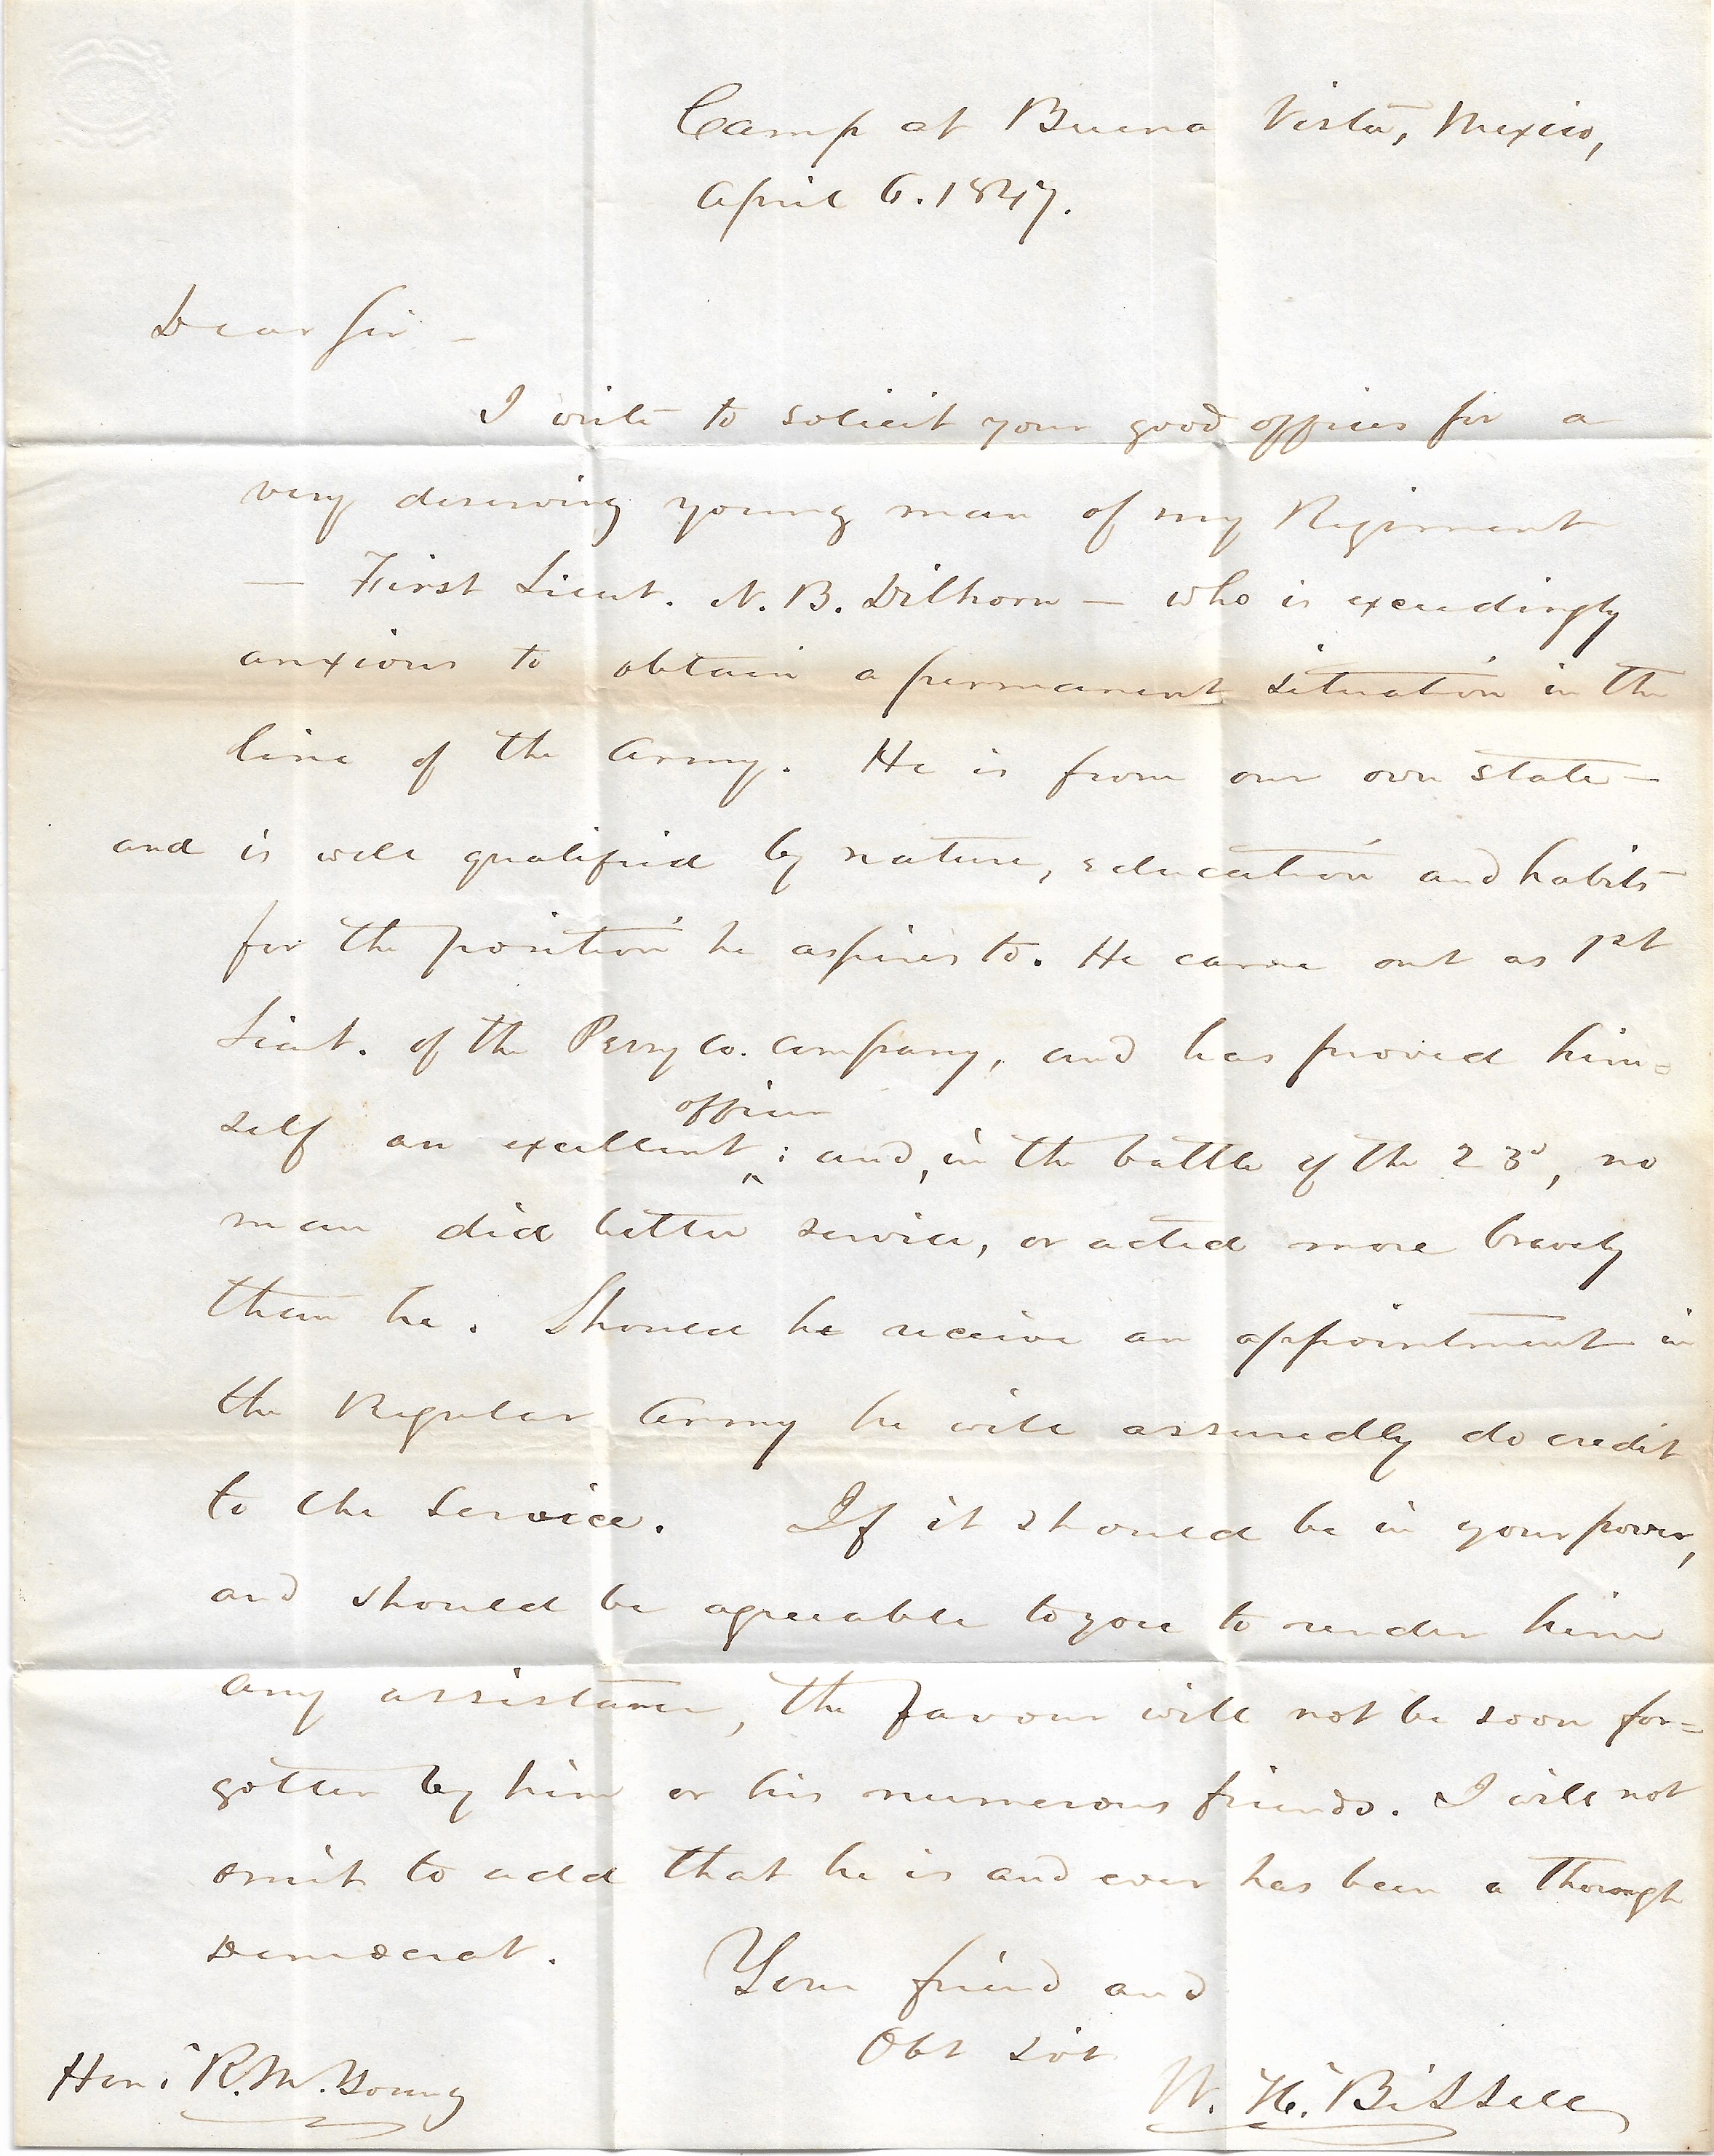 Camp at Buena Vista, Mexico,
April 6. 1847.
Dear Sir —
I write to solicit your good offices for a
very deserving young man of my Regiment
— First Lieut. N. B. Dilhorn — who is exceedingly
anxious to obtain a permanent situation in the
line of the Army. He is from our own state —
and is well qualified by nature, education and habits
for the position he aspires to. He came out as 1st
Lieut. of the Perry Co. company, and has proved him=
officer
self an excellent ^ ; and, in the battle of the 23d, no
man did better service, or acted more bravely
than he. Should he receive an appointment in
the Regular Army he will assuredly do credit
to the service. If it should be in your power,
and should be agreeable to you to render him
any assistance, the favour will not be soon for=
gotten by him or his numerous friends. I will not
omit to add that he is and ever has been a thorough
Democrat.
Your friend and
Obt Svt
W. H. Bissell
Hon: R. M. Young